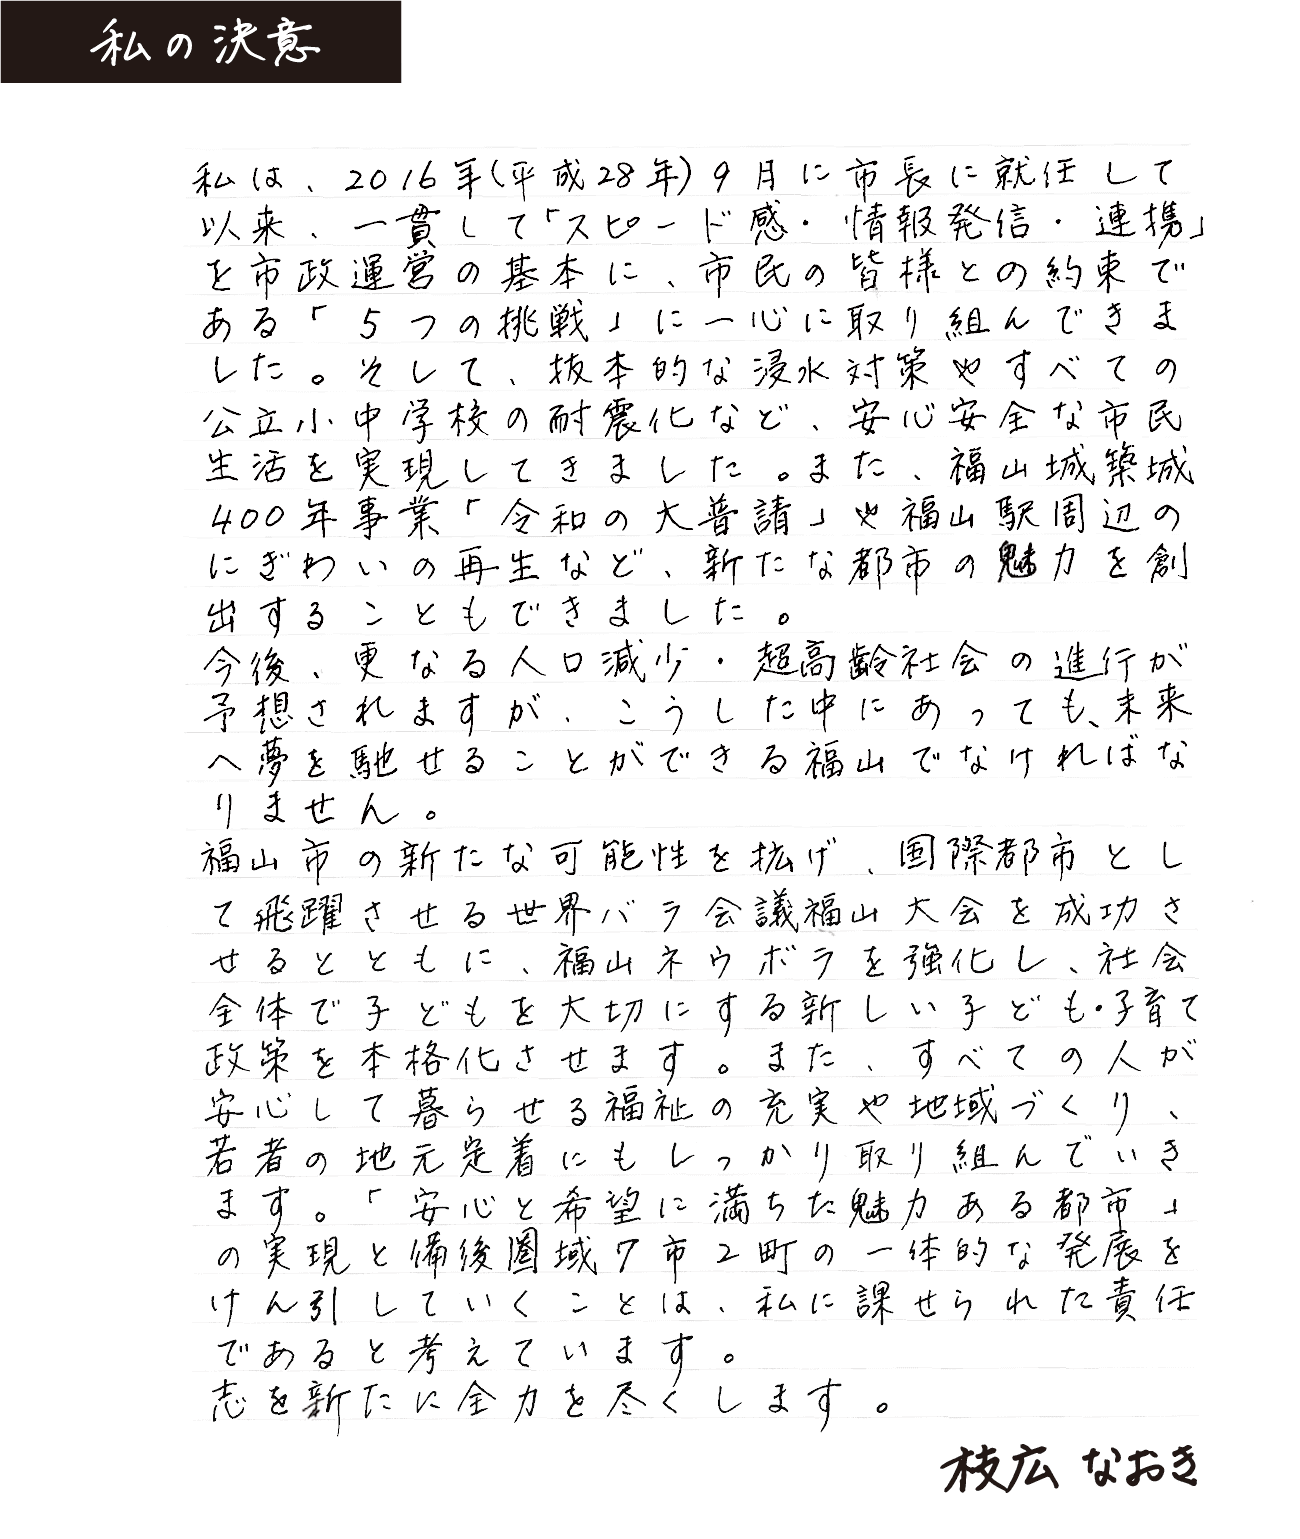 私の決意
私は、2016年(平成28年)9月に市長に就任して
以来、一貫して「スピード感・情報発信・連携」
を市政運営の基本に、市民の皆様との約束で
ある「5つの挑戦」に一心に取り組んできま
した。そして、抜本的な浸水対策やすべての
公立小中学校の耐震化など、安心安全な市民
生活を実現してきました。また、福山城築城
400年事業「令和の大普請」や福山駅周辺の
にぎわいの再生など、新たな都市の魅力を創
出することもできました。
今後、更なる人口減少・超高齢社会の進行が
予想されますが、こうした中にあっても、未来
へ夢を馳せることができる福山でなければな
りません。
福山市の新たな可能性を拡げ、国際都市とし
て飛躍させる世界バラ会議福山大会を成功さ
せるとともに、福山ネウボラを強化し、社会
全体で子どもを大切にする新しい子ども・子育て
政策を本格化させます。また、すべての人が
安心して暮らせる福祉の充実や地域づくり、
若者の地元定着にもしっかり取り組んでいき
ます。「安心と希望に満ちた魅力ある都市」
の実現と備後圏域7市2町の一体的な発展を
けん引していくことは、私に課せられた責任
であると考えています。
志を新たに全力を尽くします。
枝広 なおき